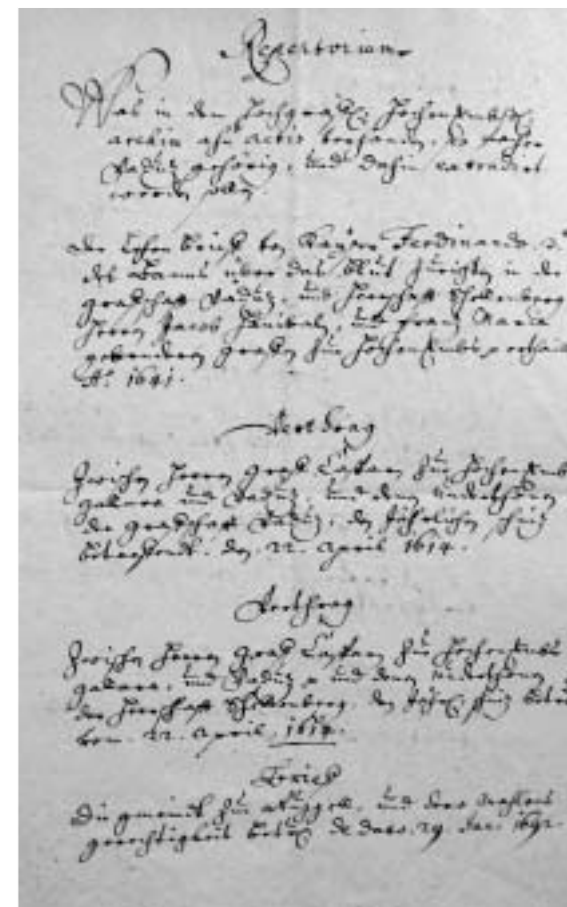 Repertorium
Was in dem Hochgräfl: Hochenembs:
archiv ahn actis vorhanden, so nacher
Vaduz gehörig, und dahin extradiert
worden
Der Lehen brieff von Kayser Ferdinando 3.
des Banns über das bluet Gericht in der
graffschafft Vaduz, und Herrschafft Schellenberg
Herrn Jacob Hanibaln, und Franz Maria
gebruedern Graffen zue Hochenembs ertheilt
Aº 1641.
Vertrag
Zwischen Herrn Graff Caspar zue Hochenembs
gallara und Vaduz, und dem Underthonen
der graffschafft Vaduz, den Jährlichen schniz
betreffendt. den 22. April 1614.
Verthrag
Zwischen Herrn Graff Caspar zue Hochenembs
gallara, und Vaduz und denen Underthonen
der Herrschafft Schellenberg, den schniz
vom 22. April 1614.
Brieff
Die gemeindt zue Ruggell, und
gerechtigkeit betref: de dato 29. 1692.